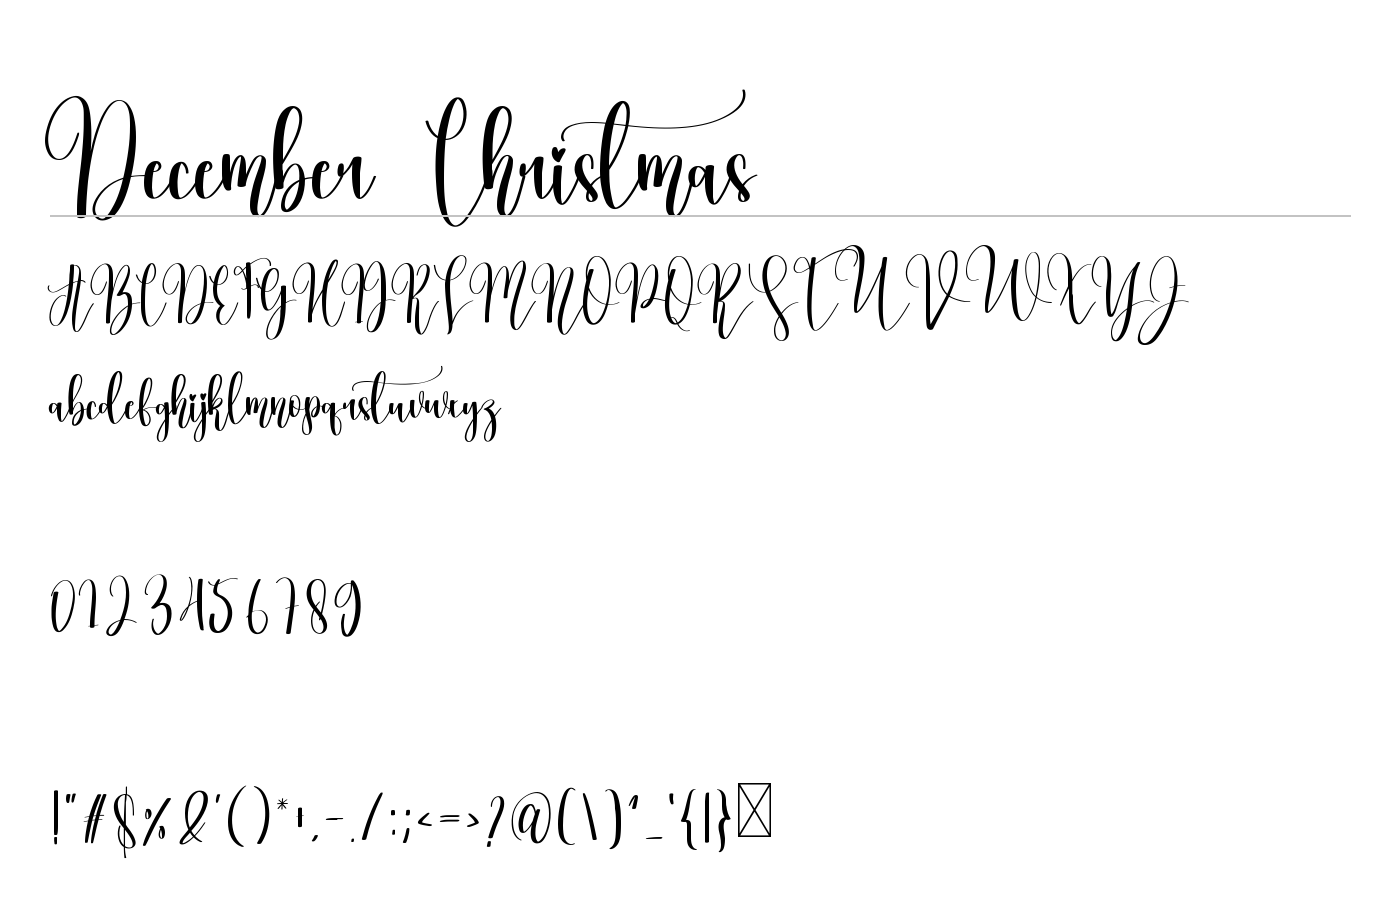 December Christmas
ABCDEFGHIJKLMNOPQRSTUVWXYZ
abcdefghijklmnopqrstuvwxyz
0123456789
!"#$%&'()*+,-./:;<=>?@[\]^_`{|}